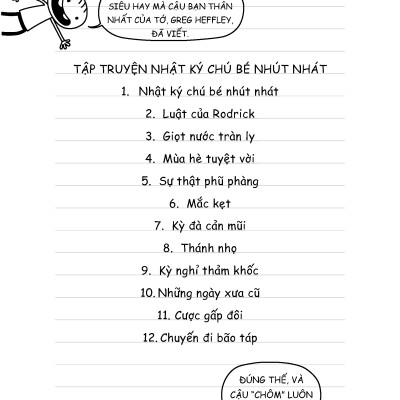 SIÊU HAY MÀ CẬU BẠN THÂN
NHẤT CỦA TỚ, GREG HEFFLEY,
ĐÃ VIẾT.
TẬP TRUYỆN NHẬT KÝ CHÚ BÉ NHÚT NHÁT
1. Nhật ký chú bé nhút nhát
2. Luật của Rodrick
3. Giọt nước tràn ly
4. Mùa hè tuyệt vời
5. Sự thật phũ phàng
6. Mắc kẹt
7. Kỳ đà cản mũi
8. Thánh nhọ
9. Kỳ nghỉ thảm khốc
10. Những ngày xưa cũ
11. Cược gấp đôi
12. Chuyến đi bão táp
ĐÚNG THẾ, VÀ
CẬU "CHÔM" LUÔN